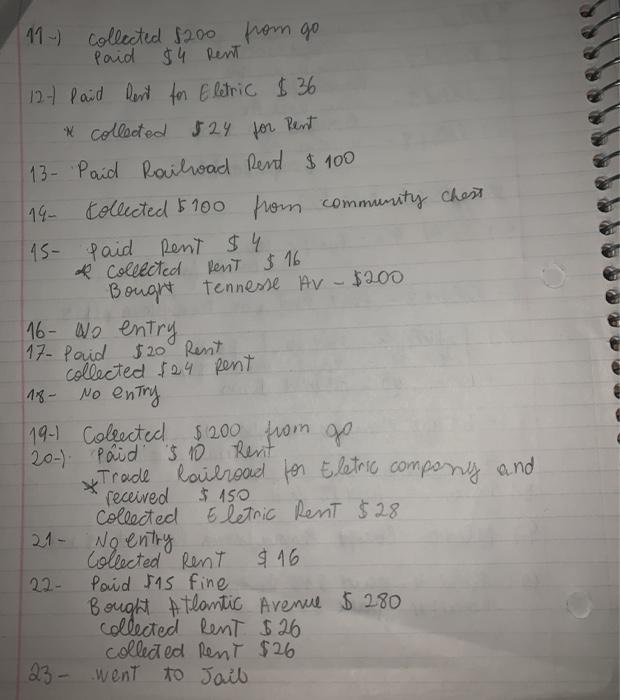 11-) collected $200 from go
Paid $4 Rent
12-) Paid Rent for Eletric $36
* collected $24 for Rent
13- Paid Railroad Rend $100
14- Collected $100 from community chest
15- Paid Rent $4
* Collected Rent $16
Bought Tennesse Av - $200
16- No entry
17- Paid $20 Rent
collected $24 Rent
18- No entry
19-) Collected $200 from go
20-) Paid $10 Rent
* Trade Railroad for Eletric company and
received $150
Collected Eletric Rent $28
21- No entry
Collected Rent $16
22- Paid $15 fine
Bought Atlantic Avenue $280
collected Rent $26
collected Rent $26
23- went to Jail